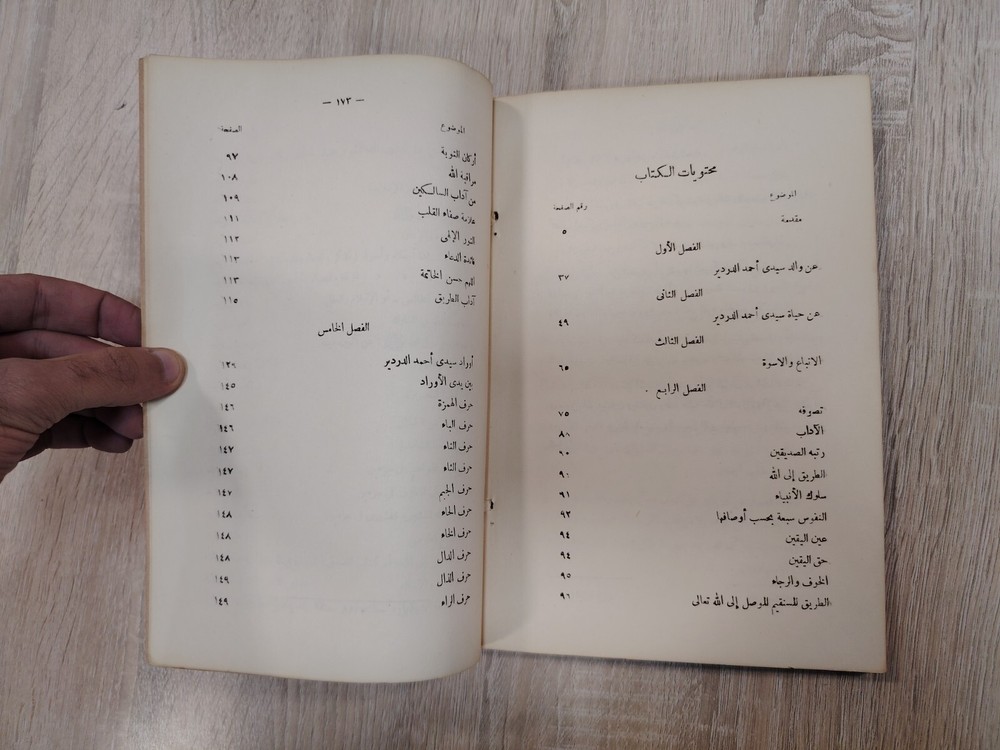 محتويات الكتاب
الموضوع رقم الصفحة
مقدمة ٥
الفصل الأول
عن والد سيدى أحمد الدردير ٣٧
الفصل الثانى
عن حياة سيدى أحمد الدردير ٤٩
الفصل الثالث
الاتباع والاسوة ٦٥
الفصل الرابع
تصوفه ٧٥
الآداب
رتبه الصديقين
الطريق إلى الله
سلوك الأنبياء ٩١
النفوس سبعة بحسب أوصافها ٩٢
عين اليقين ٩٤
حق اليقين ٩٤
الخوف والرجاء ٩٥
الطريق المستقيم للوصل إلى الله تعالى ٩٦
— ١٧٣ —
الموضوع الصفحة
أركان التوبة ٩٧
مراقبة الله ١٠٨
من آداب السالكين ١٠٩
علامة صفاء القلب ١١١
النور الإلهى ١١٢
فائدة الدعاء ١١٣
اللهم حسن الخاتمة ١١٣
آداب الطريق ١١٥
الفصل الخامس
أوراد سيدى أحمد الدردير ١٢٩
بين يدى الأوراد ١٤٥
حرف الهمزة ١٤٦
حرف الباء ١٤٦
حرف التاء ١٤٧
حرف الثاء ١٤٧
حرف الجيم ١٤٧
حرف الحاء ١٤٨
حرف الخاء ١٤٨
حرف الدال ١٤٨
حرف الذال ١٤٩
حرف الراء ١٤٩